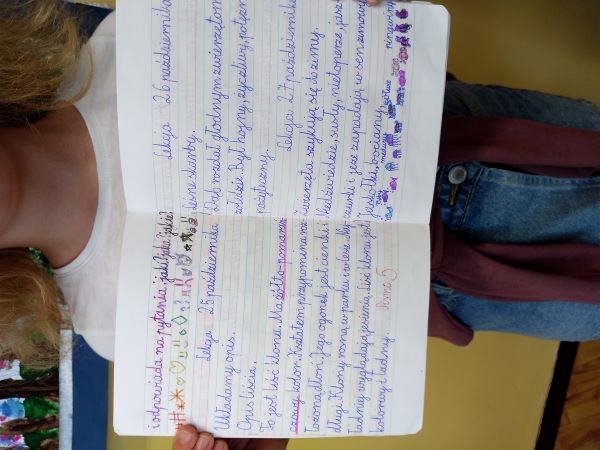 i odpowiada na pytania: jaki? jaka? jakie?
Lekcja 25 października
Układamy opis.
Opis liścia.
To jest liść klonu. Ma żółto-pomarań-
czowy kolor. Kształtem przypomina roz-
łożoną dłoń. Jego ogonek jest cienki i
długi. Klony rosną w parku i w lesie. Bar-
dzo ładnie wyglądają jesienią. Liść klonu jest
kolorowy i ładny.
Lekcja 26 października
leśne skarby.
Dąb rozdał głodnym zwierzętom
żołędzie. Był hojny, życzliwy,
pożyteczny.
Lekcja 27 października
Zwierzęta szykują się do zimy.
Niedźwiedzie, susły, nietoperze,
i jeże zapadają w sen zimowy.
Jaskółki, bociany,